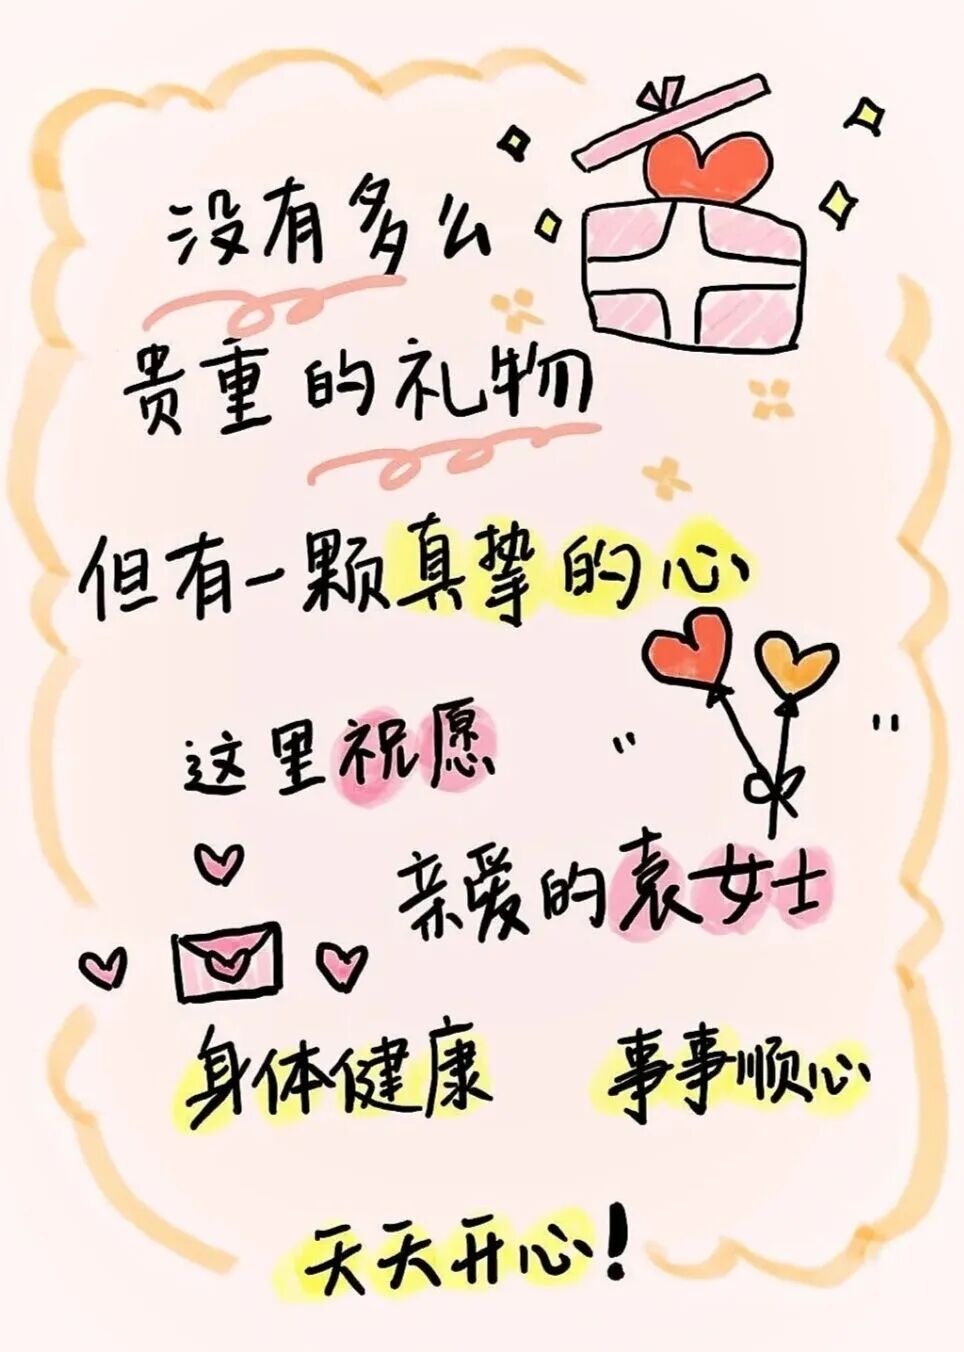 没有多么
贵重的礼物
但有一颗真挚的心
这里祝愿
亲爱的袁女士
身体健康 事事顺心
天天开心！